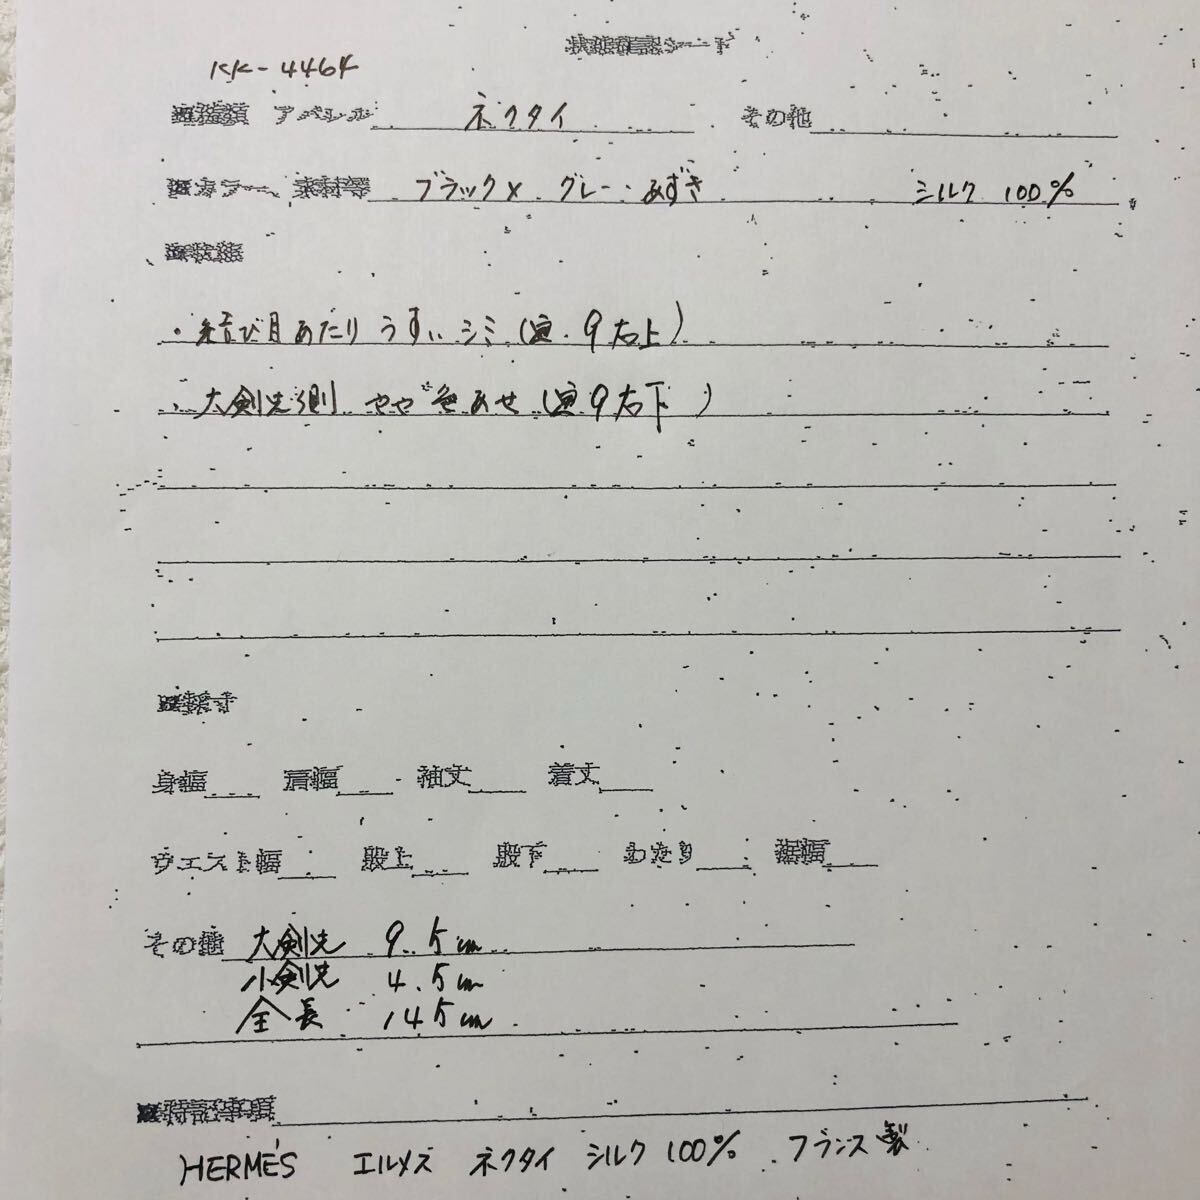 状態確認シート
KK-4464
アパレル ネクタイ その他
カラー、素材等 ブラック× グレー・あずき シルク 100%
・結び目あたり うすいシミ(画.9右上)
・大剣先側 やや色あせ(画9右下)
身幅 肩幅 袖丈 着丈
ウエスト幅 股上 股下 わたり 裾幅
その他 大剣先 9.5cm
小剣先 4.5cm
全長 145cm
特記事項
HERMÉS エルメス ネクタイ シルク 100% フランス製